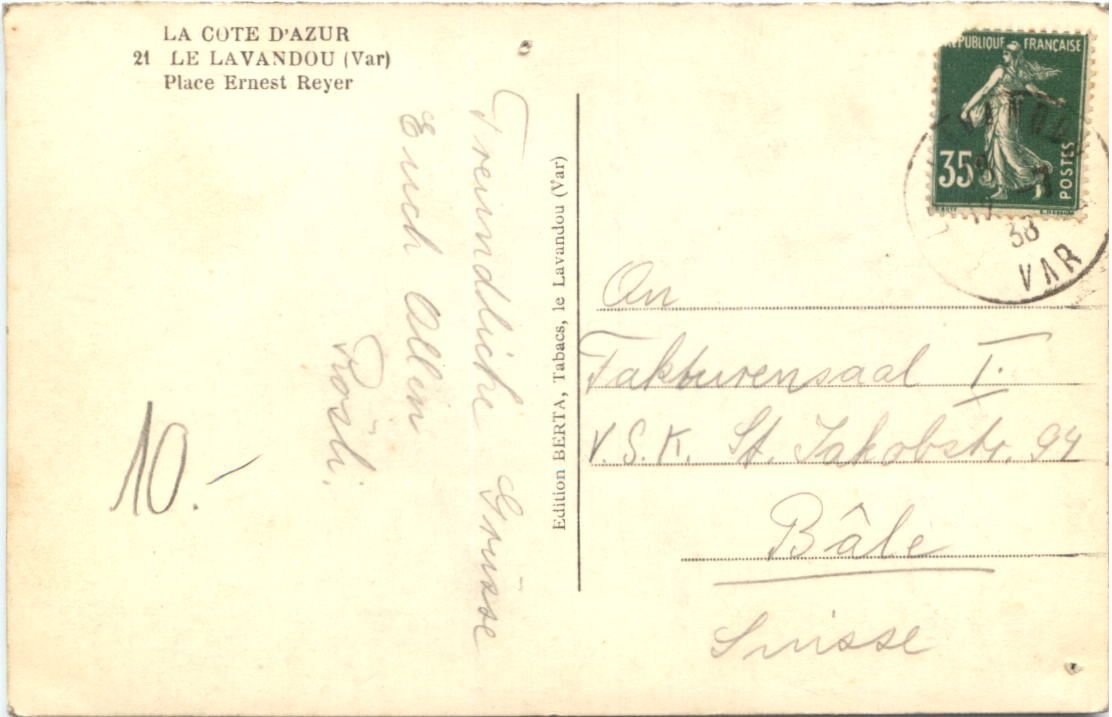 LA COTE D'AZUR
21 LE LAVANDOU (Var)
Place Ernest Reyer
Freundliche Grüsse
Euch Allen
Rösli.
10.-
Edition BERTA, Tabacs, le Lavandou (Var)
REPUBLIQUE FRANÇAISE
35c
POSTES
38
VAR
An
Fakturensaal I.
V.S.K. St. Jakobstr. 94
Bâle
Suisse